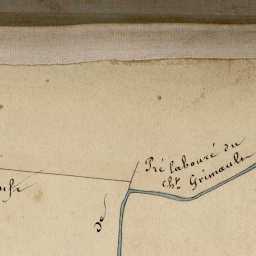 Pré labouré du
Cht. Grimault
de